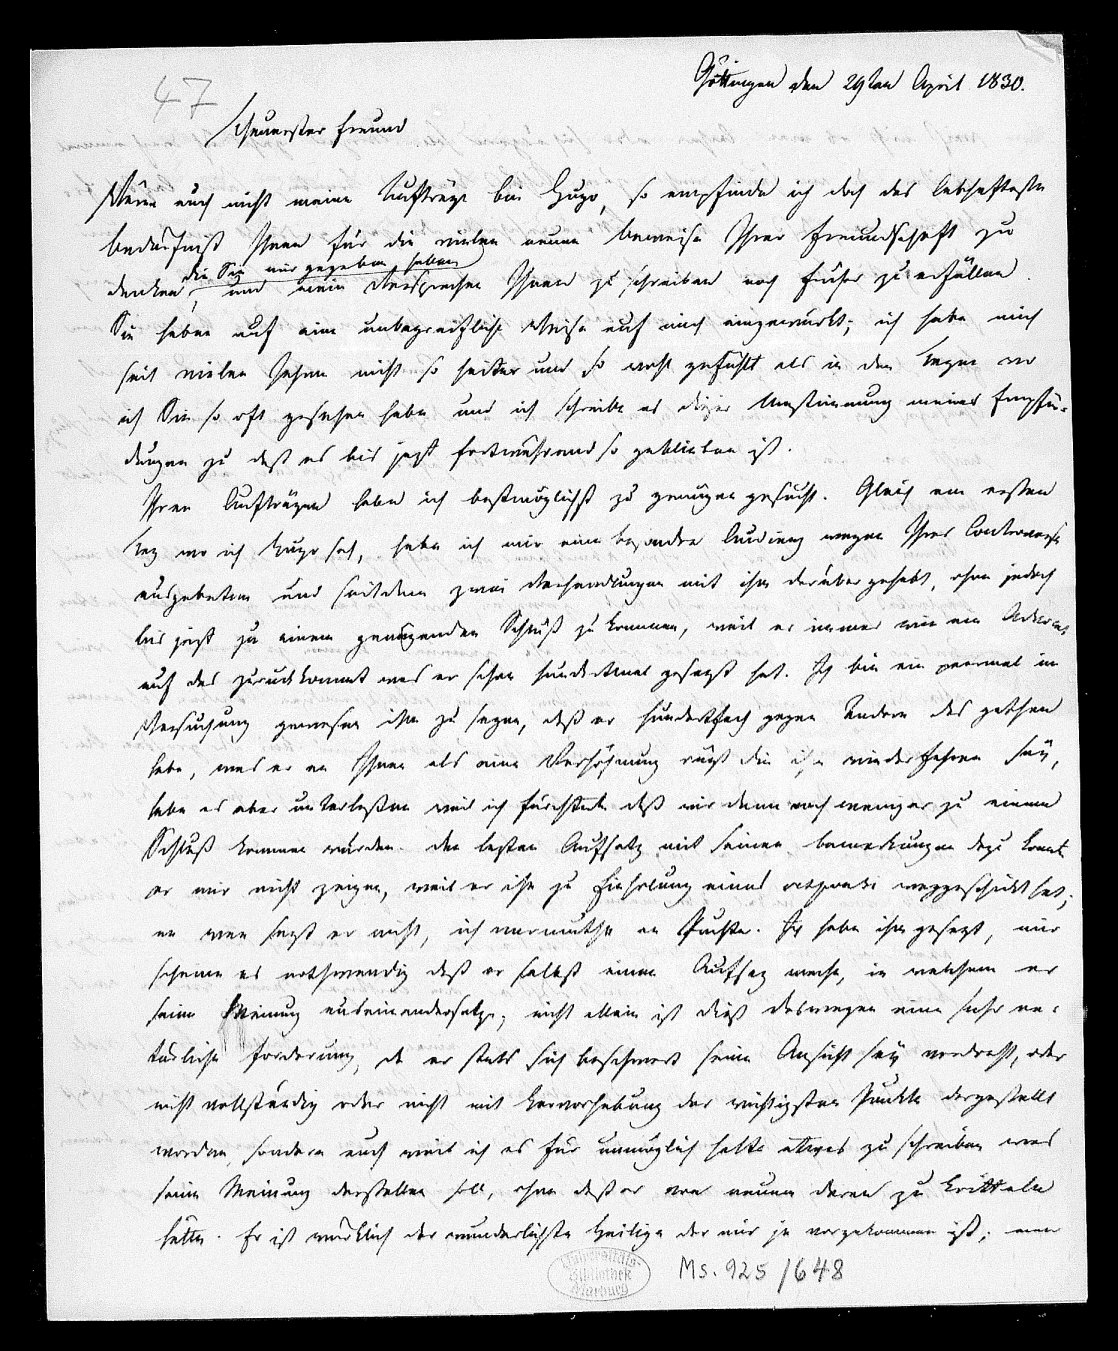 47
Göttingen den 29sten April 1830.
Theuerster Freund
Wären auch nicht meine Aufträge bei Hugo, so empfinde ich doch das lebhafteste
Bedürfniß Ihnen für die vielen neuen Beweise Ihrer Freundschaft zu
danken, die Sie mir gegeben haben und mein Versprechen Ihnen zu schreiben noch früher zu erfüllen.
Sie haben auf eine unbegreifliche Weise auf mich eingewürkt; ich habe mich
seit vielen Jahren nicht so heiter und so wohl gefühlt als in den Tagen wo
ich Sie so oft gesehen habe und ich schreibe es dieser Umstimmung meiner Empfin-
dungen zu daß es bis jetzt fortwährend so geblieben ist.
Ihren Aufträgen habe ich bestmöglichst zu genügen gesucht. Gleich am ersten
Tag wo ich Hugo sah, habe ich mir eine besondre Audienz wegen Ihrer Controverse
ausgebeten und seitdem zwei Verhandlungen mit ihm darüber gehabt, ohne jedoch
bis jetzt zu einem genügenden Schluß zu kommen, weil er immer wie ein Advocat
auf das zurückkommt was er schon hundertmal gesagt hat. Ich bin ein paarmal in
Versuchung gewesen ihm zu sagen, daß er hundertfach gegen Andere das gethan
habe, was er an Ihnen als eine Verhöhnung rügt die ihm wiederfahren sey,
habe es aber unterlaßen weil ich fürchtete daß wir dann noch weniger zu einem
Schluß kommen würden. Den letzten Aufsatz mit seinen Bemerkungen dazu konnte
er mir nicht zeigen, weil er ihn zu Einholung eines weggeschickt hat;
an wen sagt er nicht, ich vermuthe an Puchta. Ich habe ihm gesagt, mir
scheine es nothwendig daß er selbst einen Aufsaz mache, in welchem er
seine Meinung auseinandersetze; nicht allein ist dieß deswegen eine sehr na-
türliche Forderung, da er stets sich beschwert seine Ansicht sey verdreht, oder
nicht vollständig oder nicht mit Hervorhebung der wichtigsten Punkte dargestellt
worden, sondern auch weil ich es für unmöglich halte etwas zu schreiben was
seine Meinung darstellen soll, ohne daß er von neuem daran zu kritteln
hätte. Er ist würklich der wunderlichste Heilige der mir je vorgekommen ist; man
Universitäts-
Bibliothek
Marburg
Ms. 925/648